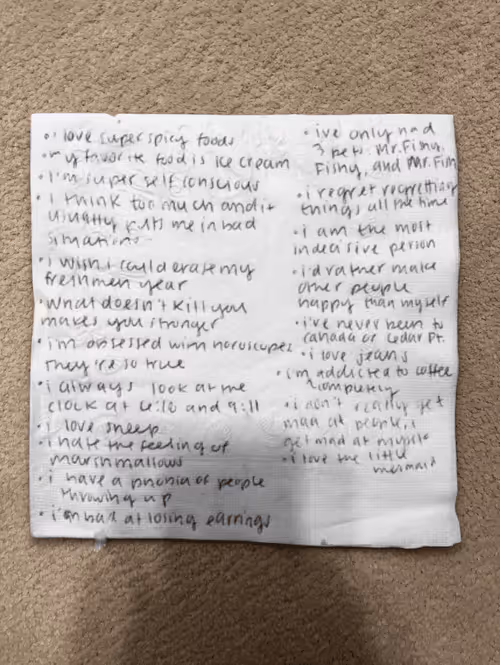 • i love super spicy foods
• my favorite food is ice cream
• I'm super self conscious
• i think too much and it
usually puts me in bad
situations
• i wish i could erase my
freshmen year
• what doesn't kill you
makes you stronger
• i'm obsessed with horoscopes
they're so true
• i always look at the
clock at and 9:11
• i love sheep
• i hate the feeling of
marshmallows
• i have a phobia of people
throwing up
• i'm bad at losing earrings
• ive only had
3 pets. Mr. Fishy,
Fishy, and Mr. Fish
• i regret regretting
things all the time
• i am the most
indecisive person
• i'd rather make
other people
happy than myself
• i've never been to
canada or Cedar Pt.
• i love jeans
• i'm addicted to coffee
completely
• i don't really get
mad at people, i
get mad at myself
• i love the little
mermaid